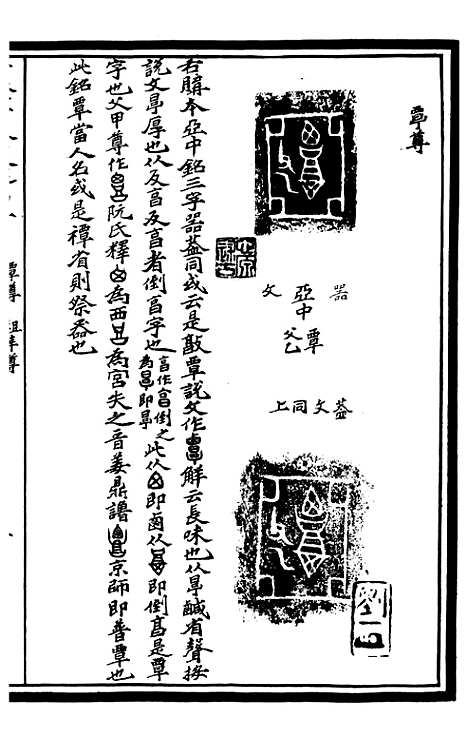 覃尊
器
文
亞中
覃
父乙
蓋文同上
右膡本亞中銘三字器蓋同或云是敲覃說文作𪉷解云長味也从㫗鹹省聲按
說文㫗厚也从反亯反亯者倒亯字也亯作亯倒之為㫗即㫗此从即鹵从即倒亯是覃
字也父甲尊作阮氏釋為西為宮失之晉姜鼎譜京師即普覃也
此銘覃當人名或是禫省則祭器也
覃尊 祖辛尊